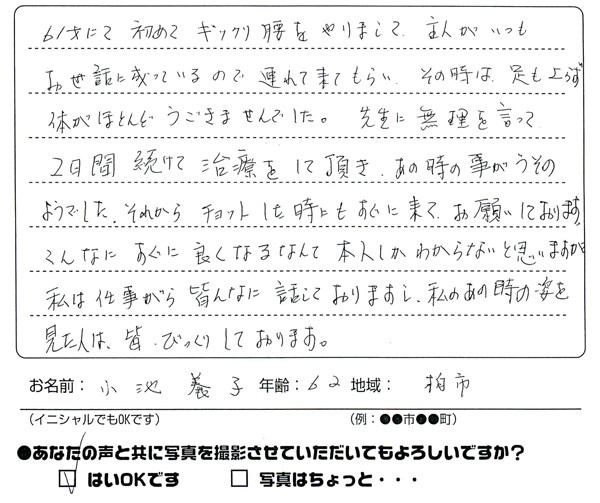 61才にて 初めて ギックリ腰をやりまして、主人がいつも
お世話に成っているので 連れて来てもらい、その時は、足も上らず
体がほとんどうごきませんでした。 先生に無理を言って
2日間 続けて 治療をして頂き、あの時の事がうその
ようでした、それから チョットした時にもすぐに来て、お願いしております。
こんなに すぐに 良くなるなんて 本人しかわからないと思いますが
私は仕事がら 皆んなに 話しておりますし、私のあの時の姿を
見た人は、皆、びっくりしております。
お名前：小池 養子 年齢：62 地域：柏市
(イニシャルでもOKです) (例：●●市●●町)
●あなたの声と共に写真を撮影させていただいてもよろしいですか？
☑ はいOKです □ 写真はちょっと・・・